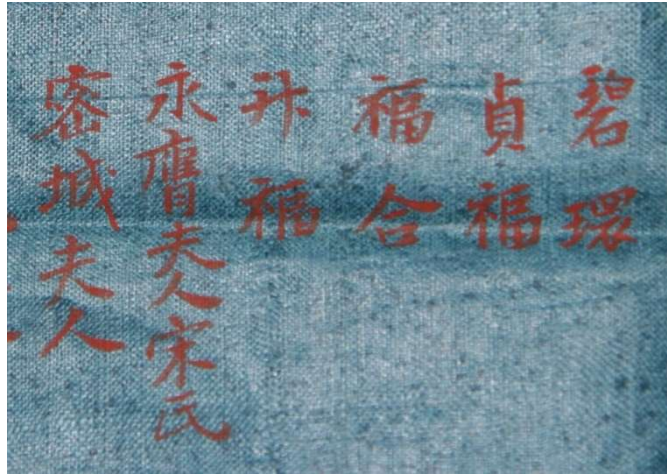 碧環
貞福
福合
𢎖福
永膺夫人宋氏
密城夫人